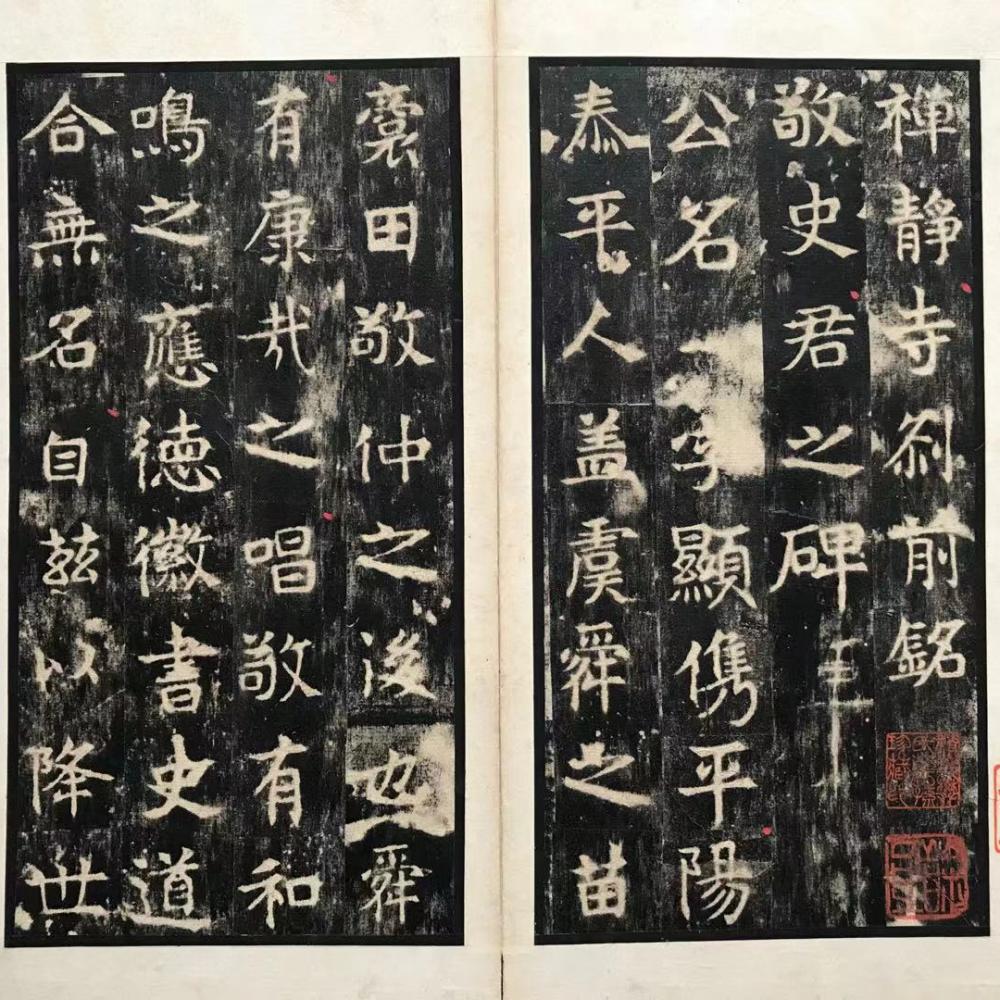 禅静寺刹前銘
敬史君之碑
公名 字顯儁平陽
泰平人盖虞舜之苗
裔田敬仲之後也舜
有康哉之唱敬有和
鳴之應德徽書史道
合無名自兹以降世